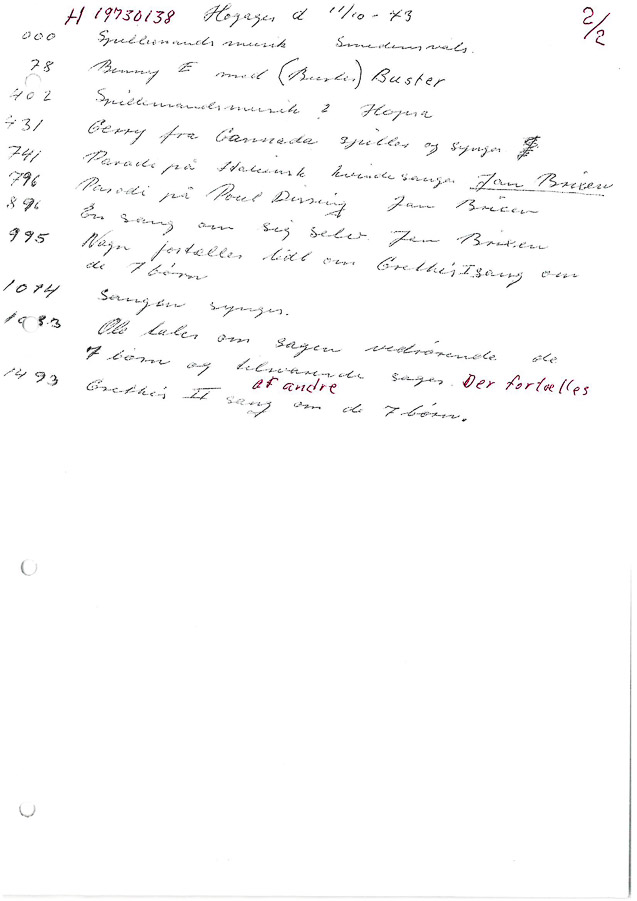 H 19730138 Hogager d 11/10-73 2/2
000 Spillemandsmusik Smedensvals.
78 Benny E med (Buster) Buster
402 Spillemandsmusik ? Hopsa
431 Gerry fra Cannada spiller og synger
741 Parodi på Italiensk kvindesanger Jan Brixen
796 Parodi på Poul Dissing Jan Brixen
896 En sang om sig selv. Jan Brixen
995 Nogn fortæller lidt om Grethes I sang om
de 7 børn
1014 Sangen synges.
1033 Ole taler om sagen vedrørende de
7 børn og tilsvarende sager. Der fortælles
af andre
1493 Grethes II sang om de 7 børn.